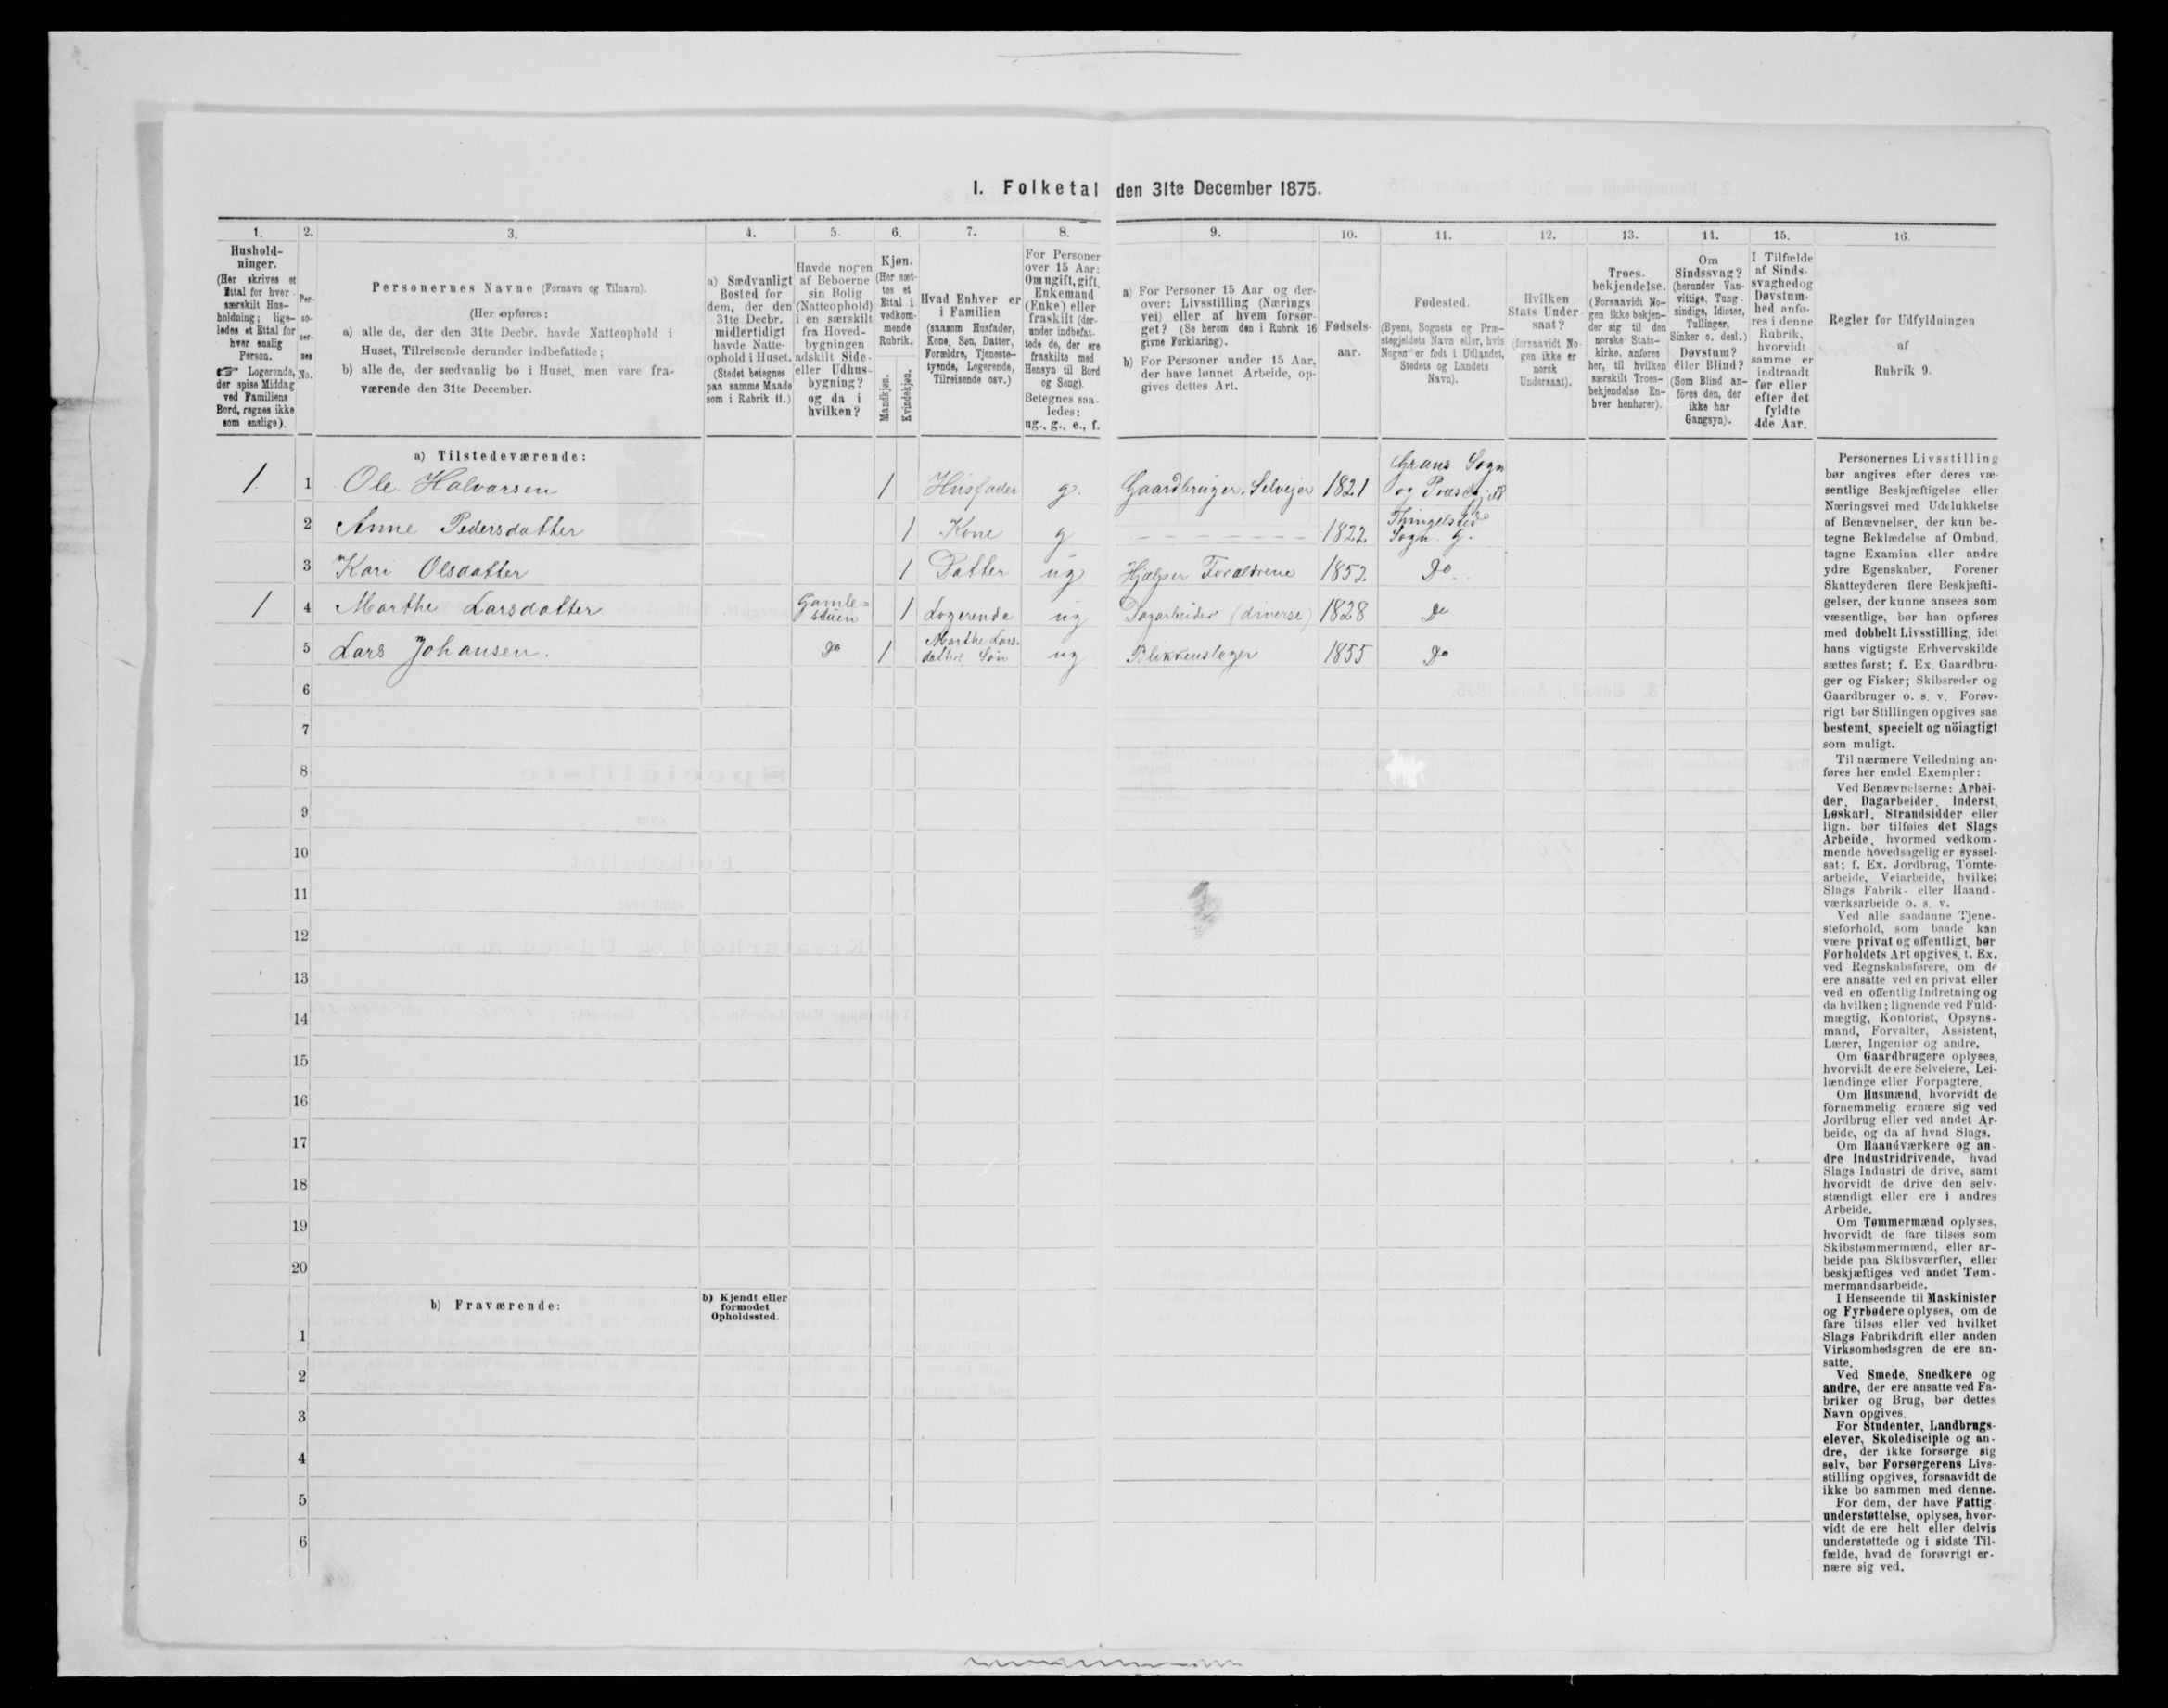 1. Folketal den 31te December 1875.
1.
2.
3.
4.
5.
6.
7.
8.
9.
10.
11.
12.
13.
14.
15.
16.
Hushold-
ninger.
(Her skrives et
Ettal for hver
særskilt Hus-
holdning; lige-
ledes et Ettal for
hver enslig
Person.
☞ Logerende,
der spise Middag
ved Familiens
Bord, regnes ikke
som enslige).
Per-
so-
ner-
nes
No.
Personernes Navne (Fornavn og Tilnavn).
(Her opføres:
a) alle de, der den 31te Decbr. havde Natteophold i
Huset, Tilreisende derunder indbefattede;
b) alle de, der sædvanlig bo i Huset, men vare fra-
værende den 31te December.
a) Sædvanligt
Bosted for
dem, der den
31te Decbr.
midlertidigt
havde Natte-
ophold i Huset.
(Stedet betegnes
paa samme Maade
som i Rubrik 11.)
Havde nogen
af Beboerne
sin Bolig
(Natteophold)
i en særskilt
fra Hoved-
bygningen
adskilt Side-
eller Udhus-
bygning?
og da i
hvilken?
Kjøn.
(Her sæt-
tes et
Ettal i
vedkom-
mende
Rubrik.
Mandkjøn.
Kvindekjøn.
Hvad Enhver er
i Familien
(saasom Husfader,
Kone, Søn, Datter,
Forældre, Tjeneste-
tyende, Logerende,
Tilreisende osv.)
For Personer
over 15 Aar:
Om ugift, gift,
Enkemand
(Enke) eller
fraskilt (der-
under indbefat-
tede de, der ere
fraskilte med
Hensyn til Bord
og Seng).
Betegnes saa-
ledes:
ug., g., e., f.
a) For Personer 15 Aar og der-
over: Livsstilling (Nærings
vei) eller af hvem forsør-
get? (Se herom den i Rubrik 16
givne Forklaring).
b) For Personer under 15 Aar,
der have lønnet Arbeide, op-
gives dettes Art.
Fødsels-
aar.
Fødested.
(Byens, Sognets og Præ-
stegjeldets Navn eller, hvis
Nogen er født i Udlandet,
Stedets og Landets
Navn).
Hvilken
Stats Under
saat?
(forsaavidt No-
gen ikke er
norsk
Undersaat).
Troes-
bekjendelse.
(Forsaavidt No-
gen ikke bekjen-
der sig til den
norske Stats-
kirke, anføres
her, til hvilken
særskilt Troes-
bekjendelse En-
hver henhører).
Om
Sindssvag?
(herunder Van-
vittige, Tung-
sindige, Idioter,
Tullinger,
Sinker o. desl.)
Døvstum?
eller Blind?
(Som Blind an-
føres den, der
ikke har
Gangsyn).
I Tilfælde
af Sinds-
svaghed og
Døvstum-
hed anfø-
res i denne
Rubrik,
hvorvidt
samme er
indtraadt
før eller
efter det
fyldte
4de Aar.
Regler for Udfyldningen
af
Rubrik 9.
a) Tilstedeværende:
1. 1 Ole Halvarsen 1 Husfader g. Gaardbruger, Selvejer 1821 Grans Sogn
og Præstegjeld
2 Anne Pedersdatter 1 Kone g - - - - - - - 1822 Thingelsted
Sogn. G.
3 Kari Olsdatter 1 Datter ug Hjælper Forældrene 1852 Do
1 4 Marthe Larsdatter Gamle=
stuen 1 Logerende ug Dagarbeider (diverse) 1828 Do
5 Lars Johansen. Do 1 Marthe Lars-
datters Søn ug Blikkenslager 1855 Do
6
7
8
9
10
11
12
13
14
15
16
17
18
19
20
b) Fraværende:
b) Kjendt eller
formodet
Opholdssted.
1
2
3
4
5
6
Personernes Livsstilling
bør angives efter deres væ-
sentlige Beskjæftigelse eller
Næringsvei med Udelukkelse
af Benævnelser, der kun be-
tegne Beklædelse af Ombud,
tagne Examina eller andre
ydre Egenskaber. Forener
Skatteyderen flere Beskjæfti-
gelser, der kunne ansees som
væsentlige, bør han opføres
med dobbelt Livsstilling, idet
hans vigtigste Erhvervskilde
sættes først; f. Ex. Gaardbru-
ger og Fisker; Skibsreder og
Gaardbruger o. s. v. Forøv-
rigt bør Stillingen opgives saa
bestemt, specielt og nöiagtigt
som muligt.
Til nærmere Veiledning an-
føres her endel Exempler:
Ved Benævnelserne: Arbei-
der, Dagarbeider, Inderst,
Løskarl, Strandsidder eller
lign. bør tilføies det Slags
Arbeide, hvormed vedkom-
mende hovedsagelig er syssel-
sat; f. Ex. Jordbrug, Tomte-
arbeide, Veiarbeide, hvilket
Slags Fabrik- eller Haand-
værksarbeide o. s. v.
Ved alle saadanne Tjene-
steforhold, som baade kan
være privat og offentligt, bør
Forholdets Art opgives, t. Ex.
ved Regnskabsførere, om de
ere ansatte ved en privat eller
ved en offentlig Indretning og
da hvilken; lignende ved Fuld-
mægtig, Kontorist, Opsyns-
mand, Forvalter, Assistent,
Lærer, Ingeniør og andre.
Om Gaardbrugere oplyses,
hvorvidt de ere Selveiere, Lei-
lændinge eller Forpagtere.
Om Husmænd, hvorvidt de
fornemmelig ernære sig ved
Jordbrug eller ved andet Ar-
beide, og da af hvad Slags.
Om Haandværkere og an-
dre Industridrivende, hvad
Slags Industri de drive, samt
hvorvidt de drive den selv-
stændigt eller ere i andres
Arbeide.
Om Tømmermænd oplyses,
hvorvidt de fare tilsøs som
Skibstømmermænd, eller ar-
beide paa Skibsværfter, eller
beskjæftiges ved andet Tøm-
mermandsarbeide.
I Henseende til Maskinister
og Fyrbødere oplyses, om de
fare tilsøs eller ved hvilket
Slags Fabrikdrift eller anden
Virksomhedsgren de ere an-
satte.
Ved Smede, Snedkere og
andre, der ere ansatte ved Fa-
briker og Brug, bør dettes
Navn opgives.
For Studenter, Landbrugs-
elever, Skoledisciple og an-
dre, der ikke forsørge sig
selv, bør Forsørgerens Livs-
stilling opgives, forsaavidt de
ikke bo sammen med denne.
For dem, der have Fattig
understøttelse, oplyses, hvor-
vidt de ere helt eller delvis
understøttede og i sidste Til-
fælde, hvad de forøvrigt er-
nære sig ved.